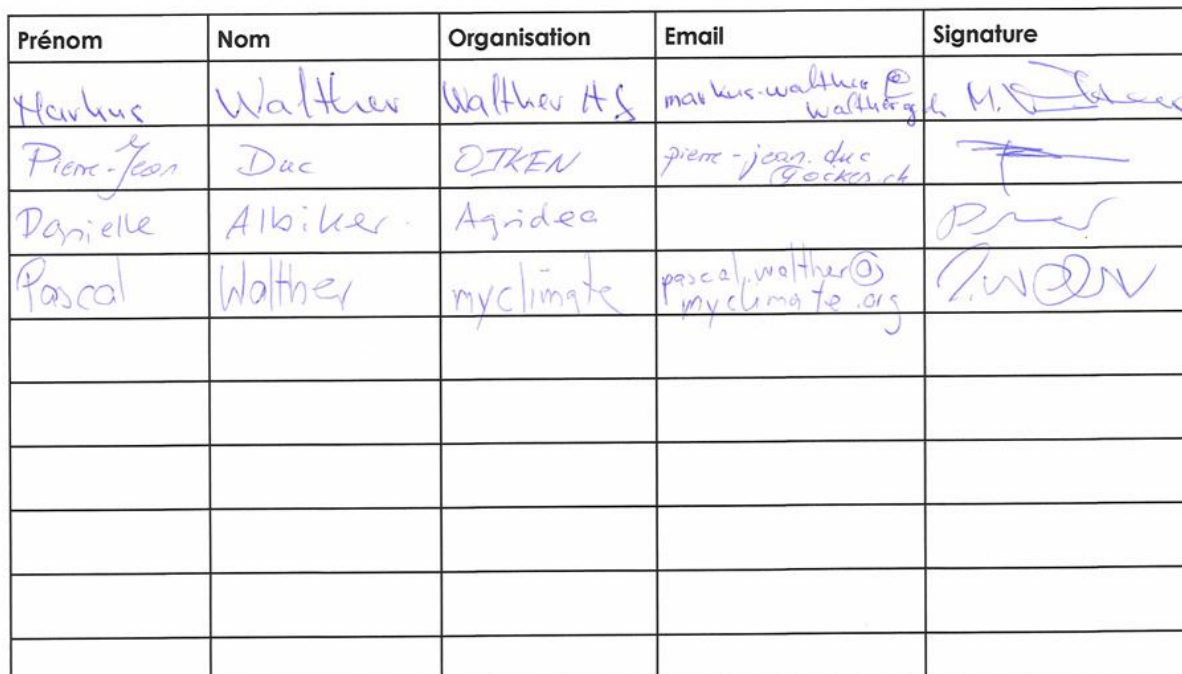 Prénom Nom Organisation Email Signature
Markus Walther Walther markus.walther@
M.
Pierre-Jean Duc OIKEN pierre-jean.duc
Danielle Albiker. Agridea
Pascal Walther myclimate pascal.walther@
myclimate.org